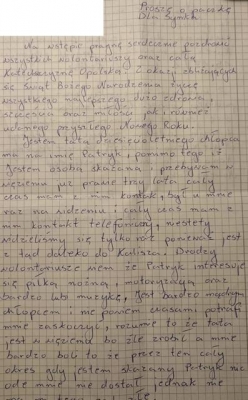 Proszę o paczkę
Dla Synka
Na wstępie pragnę serdecznie pozdrowić
wszystkich wolontariuszy oraz całą
Katedrę Opolską. Z okazji zbliżających
się Świąt Bożego Narodzenia życzę
wszystkiego najlepszego, dużo zdrowia,
szczęścia oraz miłości, jak i również
udanego przyszłego Nowego Roku.
Jestem tatą letniego chłopca
ma na imię Patryk, pomimo tego iż
Jestem osobą skazaną, przebywam w
więzieniu już prawie trzy lata cały
czas z nim kontakt, był u mnie
raz na widzeniu i cały czas mam z
nim kontakt telefoniczny, niestety
widzieliśmy się tylko raz ponieważ jest
z tąd daleko do Kalisza. Drodzy
wolontariusze wiem że Patryk interesuje
się piłką nożną, motoryzacją oraz
bardzo lubi muzykę, Jest bardzo mądrym
chłopcem i nie powiem czasami potrafi
mnie zaskoczyć, rozumie to że tata
jest w więzieniu bo źle zrobił a mnie
bardzo boli to że przez ten cały
okres gdy jestem skazany Patryk nic
ode mnie nie dostał jednak nie